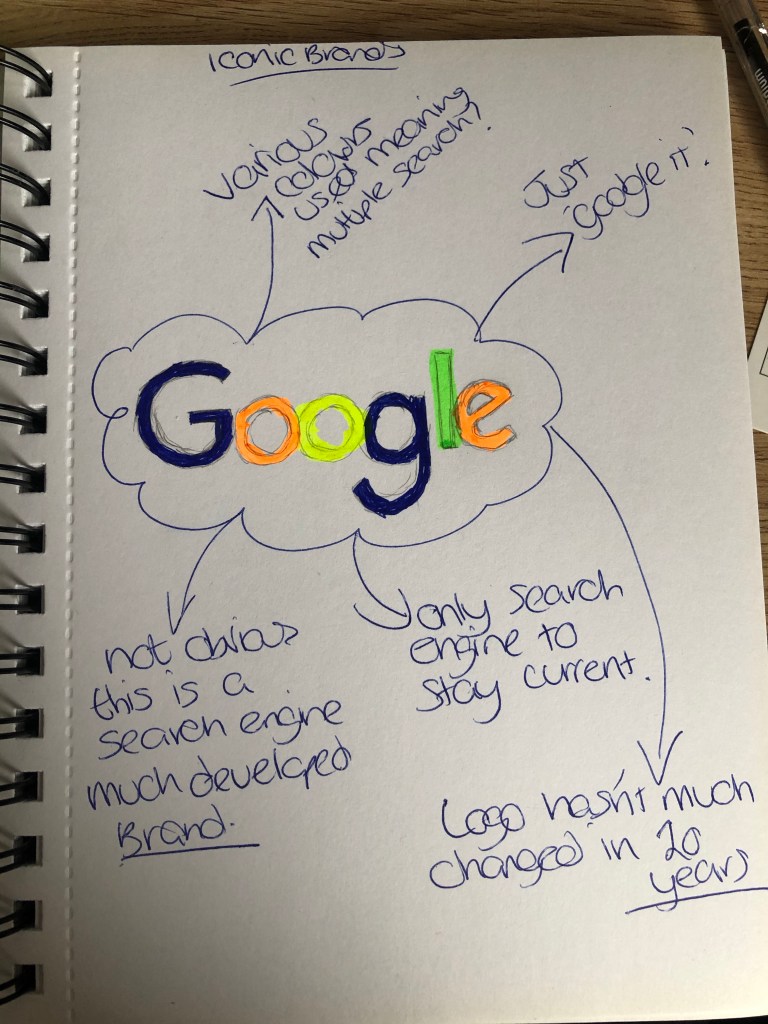 Iconic Brands
various
colours
used meaning
multiple search?
Just
'Google it'.
Google
not obvious
this is a
search engine
much developed
Brand.
only search
engine to
stay current.
Logo hasn't much
changed in 20
years